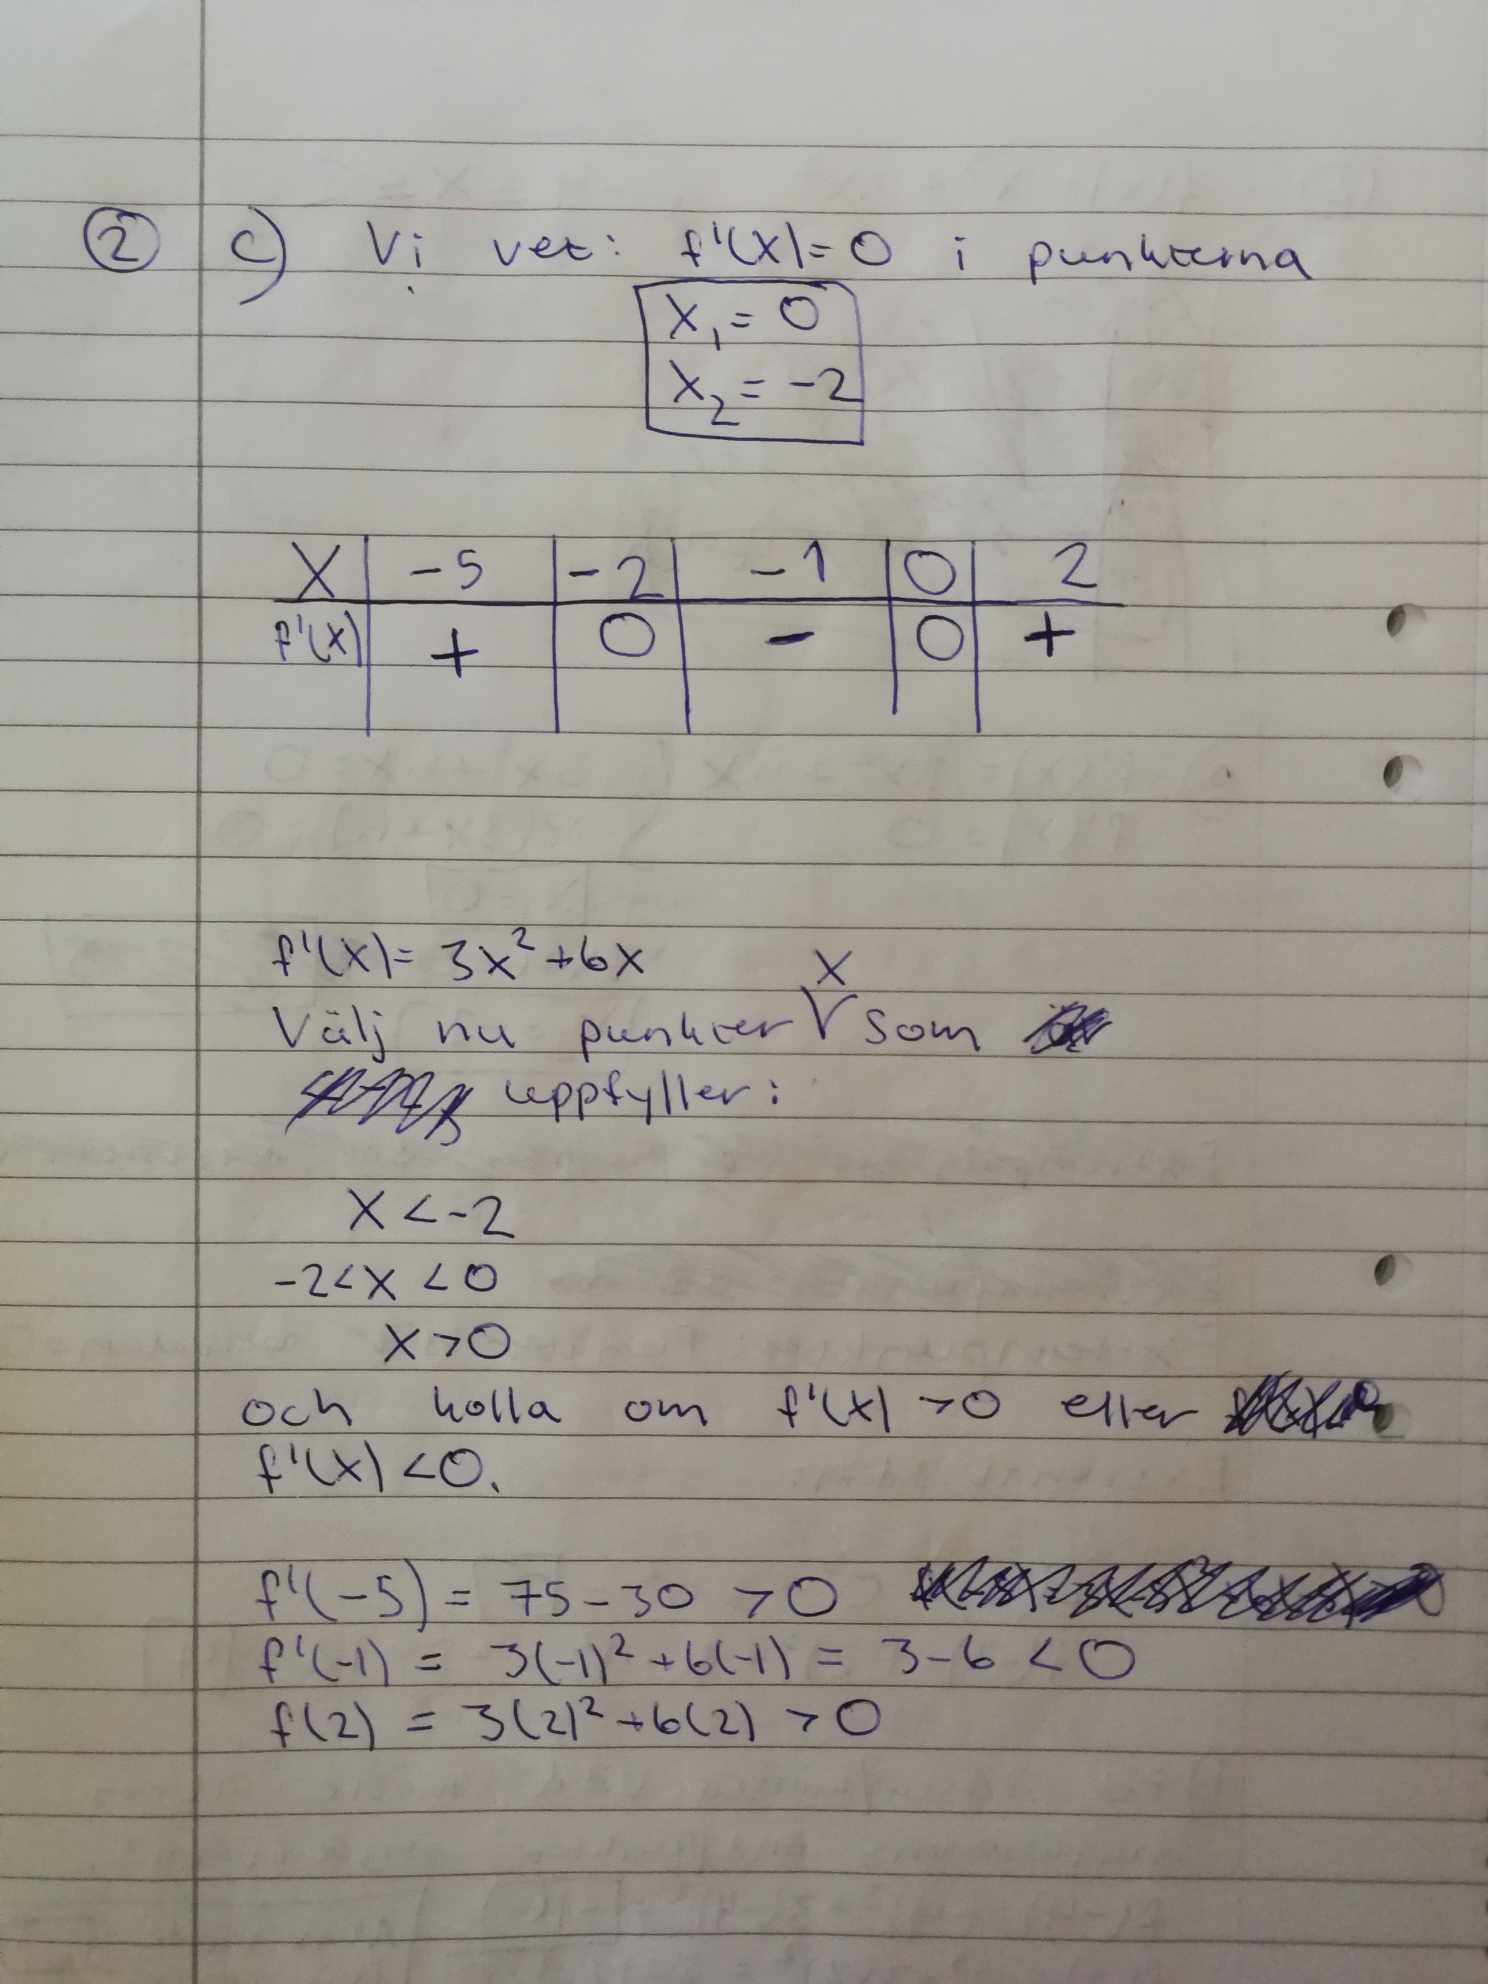 ② c) Vi vet: f'(x)=0 i punkterna
x₁ = 0
x₂ = -2
x | -5 | -2 | -1 | 0 | 2
f'(x) | + | 0 | - | 0 | +
f'(x)= 3x²+6x
x
Välj nu punkter √ som
uppfyller:
x < -2
-2 < x < 0
x > 0
och kolla om f'(x) > 0 eller
f'(x) < 0.
f'(-5) = 75 - 30 > 0
f'(-1) = 3(-1)² + 6(-1) = 3 - 6 < 0
f(2) = 3(2)² + 6(2) > 0